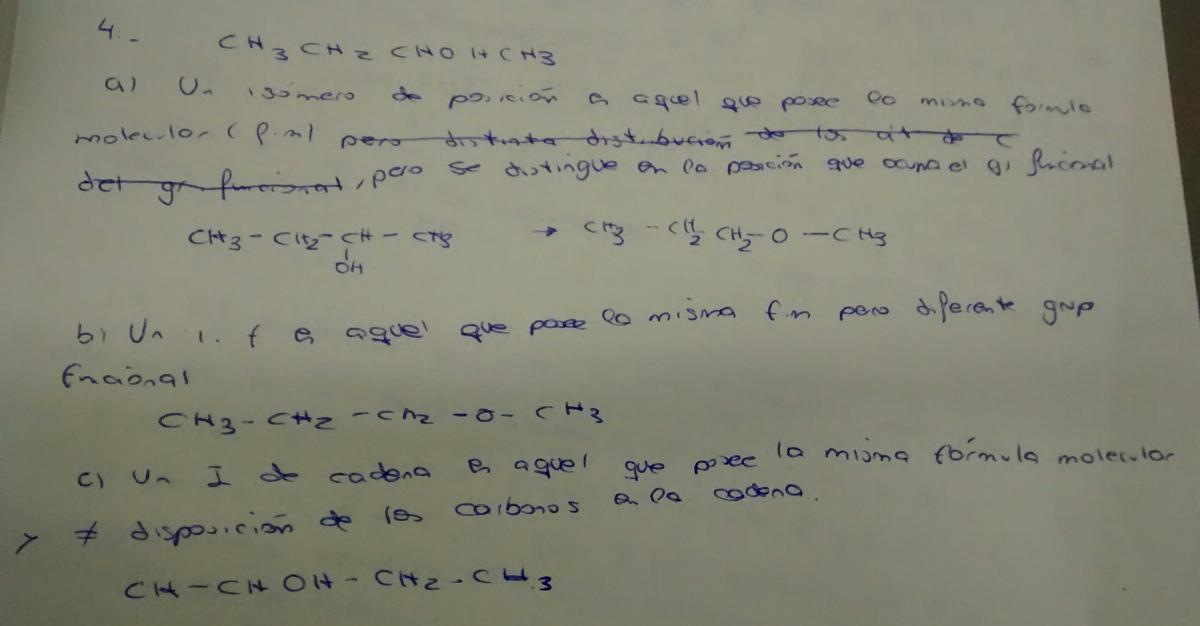 4.- CH3CH2CHOHCH3
a) Un isómero de posición es aquel que posee la misma formula
molecular (f.m) pero distinta distribución de los át de C
del gr funcional, pero se distingue en la posición que ocupa el gr funcional
CH3 - CH2 - CH - CH3 → CH3 - CH2 CH2 - O - CH3
OH
b) Un i. f es aquel que posee la misma f.m pero diferente grup
fncional
CH3 - CH2 - CH2 - O - CH3
c) Un I de cadena es aquel que posee la misma fórmula molecular
y ≠ disposición de los carbonos en la cadena.
CH - CHOH - CH2 - CH3